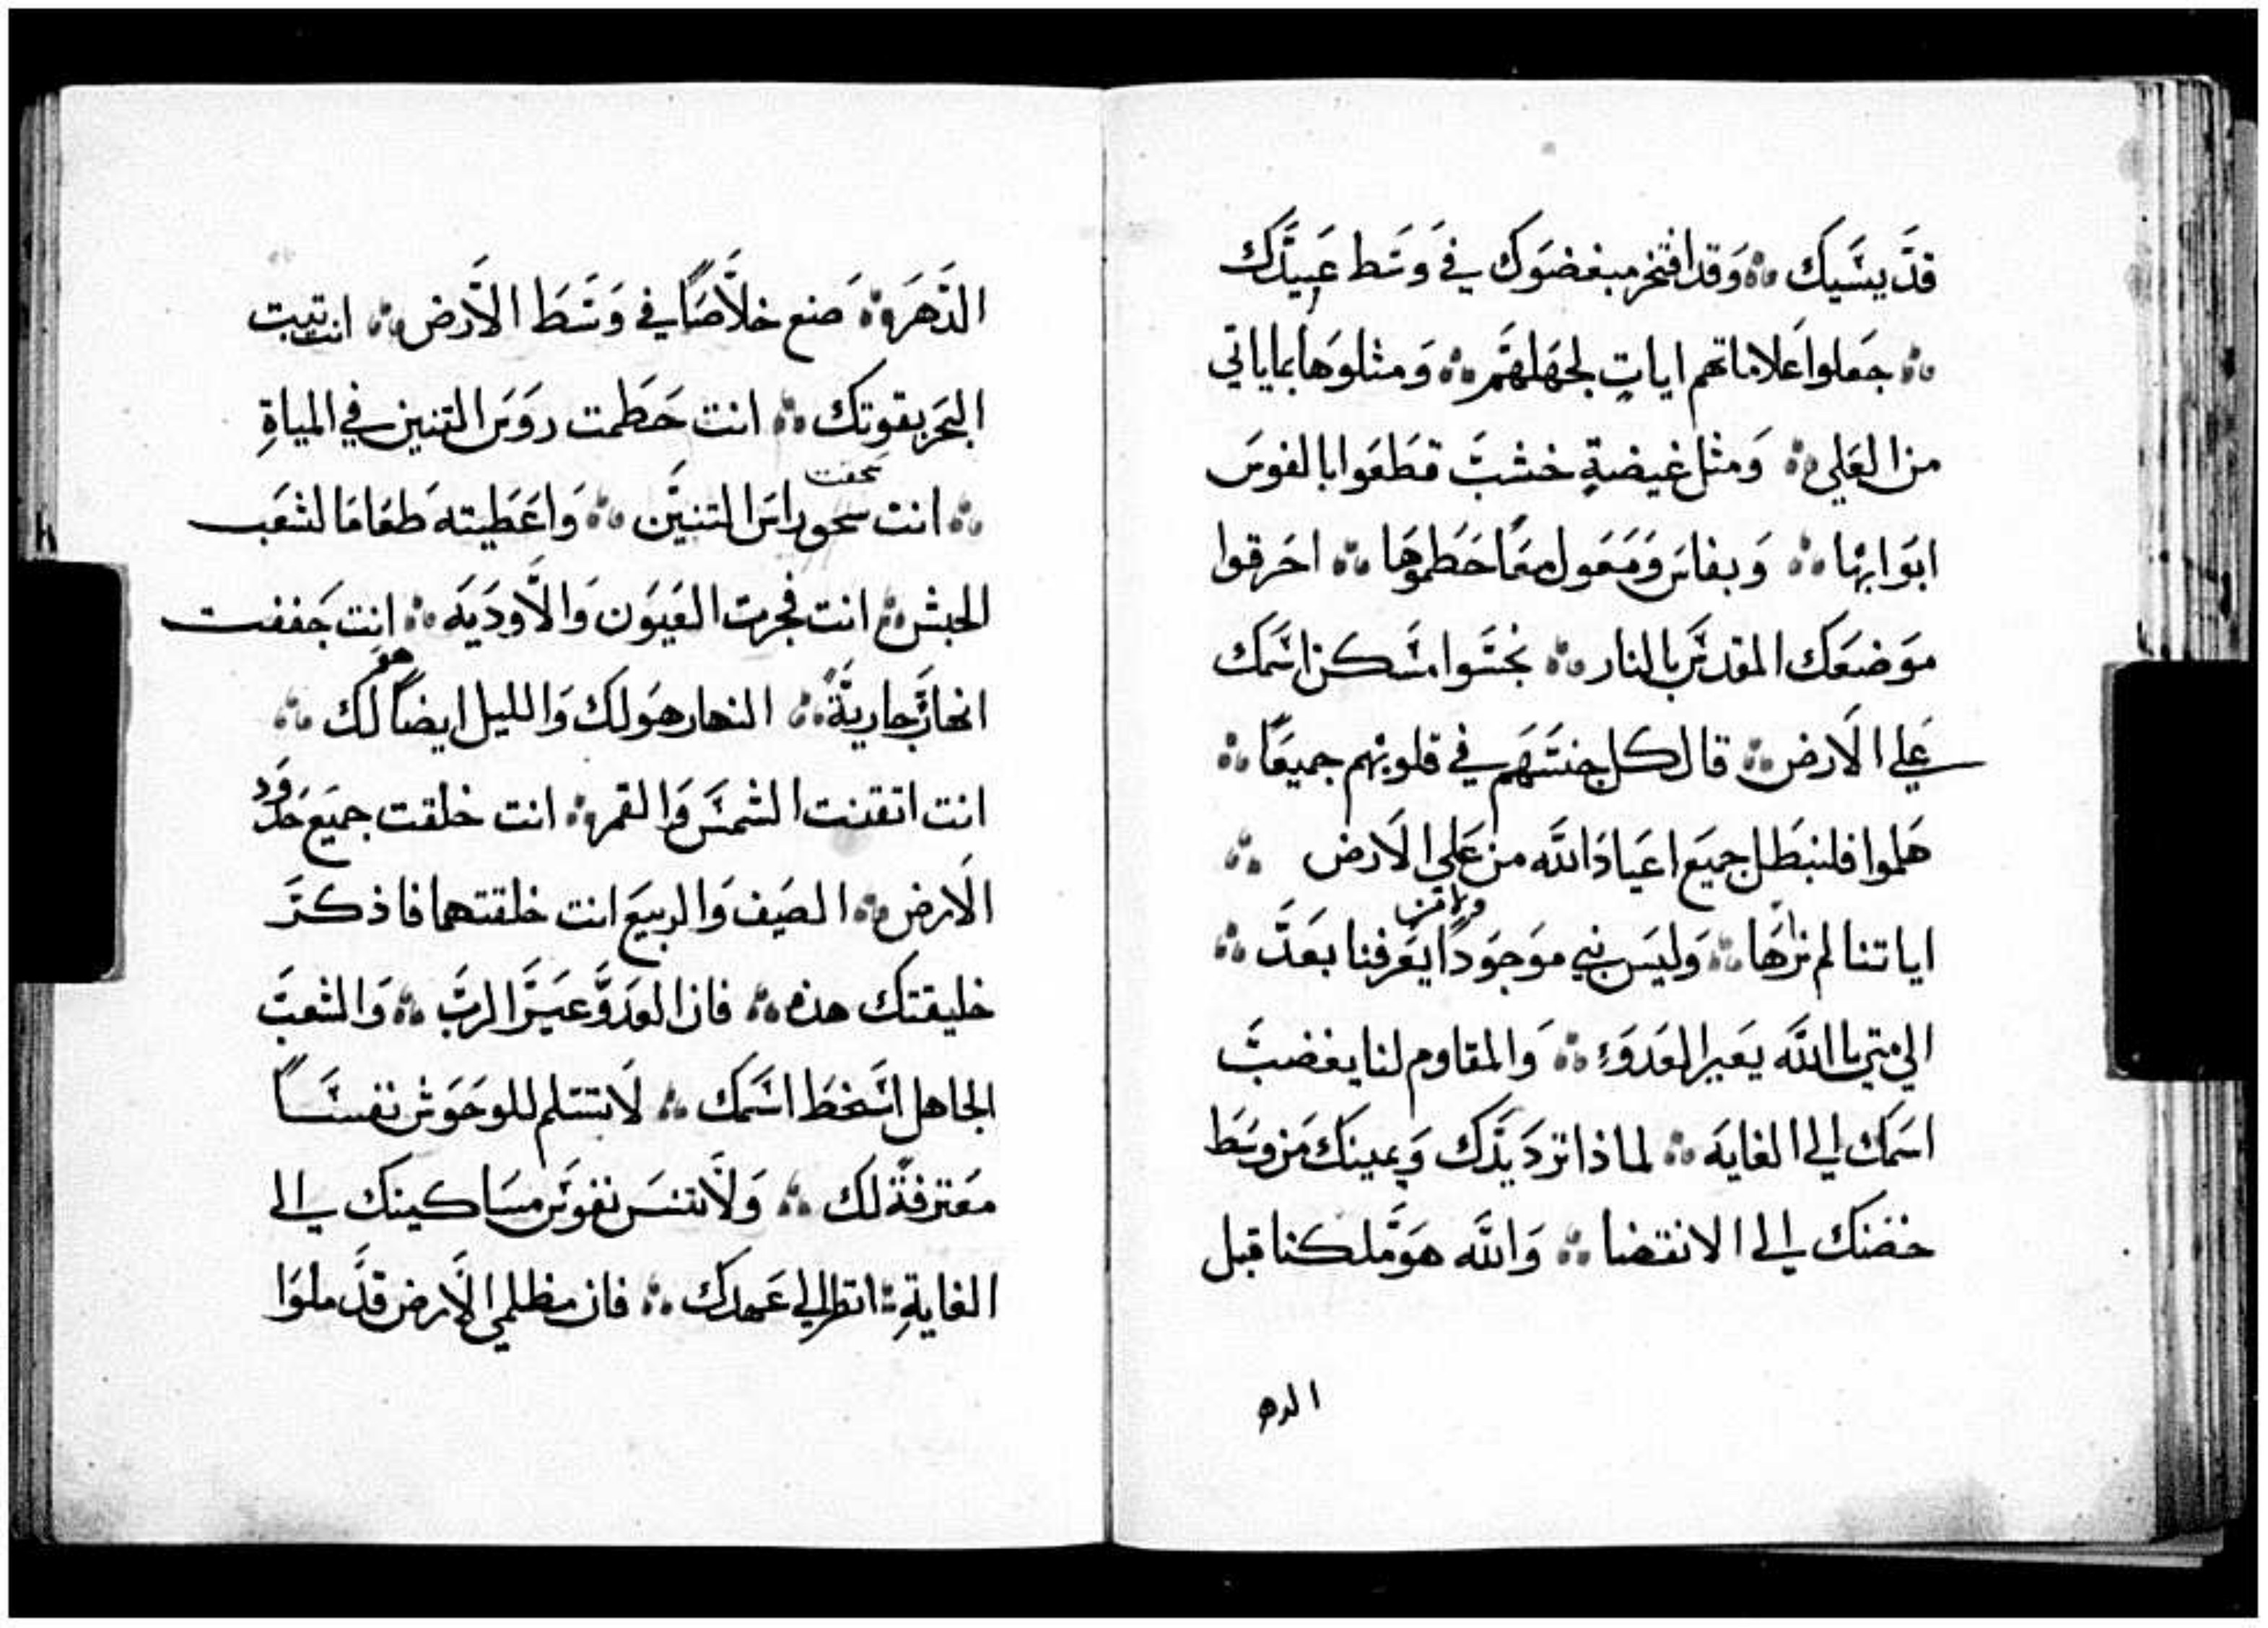 قدّيسَيك ۞ وَقدافتخرمبغضوَك في وَسَط عَبيدَك
۞ جَعلوا عَلاماتهم اياتٍ لجهَلهمَ ۞ وَمثلوَها بماياتي
من العَلي ۞ وَمثل غيضةٍ خشبَ قطَعَوا بالفوسَ
ابوَابها ۞ وَبفاسَ وَمَعَول معًا حَطموَها ۞ احَرقوا
موَضعَك المقدسَ بالنار ۞ نجسَوا مسَكن اسَمك
عَلي الَارض ۞ قال كل جنسَهَم في قلوبهم جميعًا ۞
هَلموا فلنبَطل جميَع اعَيادَ اللَّه من عَلي الَارض ۞
اياتنا لم نرَها ۞ وَليسَ نبي موَجوَدًا يعَرفنا بعَدَ ۞
الي متي يا اللَّه يعَير العَدوَ ۞ وَالمقاوم لنا يغضبَ
اسَمك الي الغايَه ۞ لماذا تردَ يدَك وَيمينك من وسَط
حضنك الي الانقضا ۞ وَاللَّه هوَ ملكنا قبل
الده
الدَهَر ۞ صَنع خلَاصًا في وَسَطَ الَارض ۞ انت ثبت
البحَر بقوتك ۞ انت حَطَمت روَسَ التنين في المياةِ
سحقت
۞ انت راسَ التنيَن ۞ وَاعَطيته طعَامَا لشعَب
الحبش ۞ انت فجرت العَيوَن وَالَاودَيَه ۞ انت جَففت
هو
انهارً جاريةً ۞ النهار هوَ لك وَالليل ايضًا لك ۞
انت اتقنت الشمسَ وَالقمر ۞ انت خلقت جميَع حَدَوَد
الَارض ۞ الصَيف وَالربيَع انت خلقتهما فاذكرَ
خليقتك هذه ۞ فان العَدوَ عيَر الربَ ۞ وَالشعبَ
الجاهل اسَخطَ اسَمك ۞ لَا تسَلم للوحَوَش نفسَاً
معَترفةً لك ۞ وَلَا تنسَ نفوَسَ مسَاكينك الي
الغايةِ ۞ انظر الي عَهدك ۞ فان مظلمي الَارض قدَ ملوَا